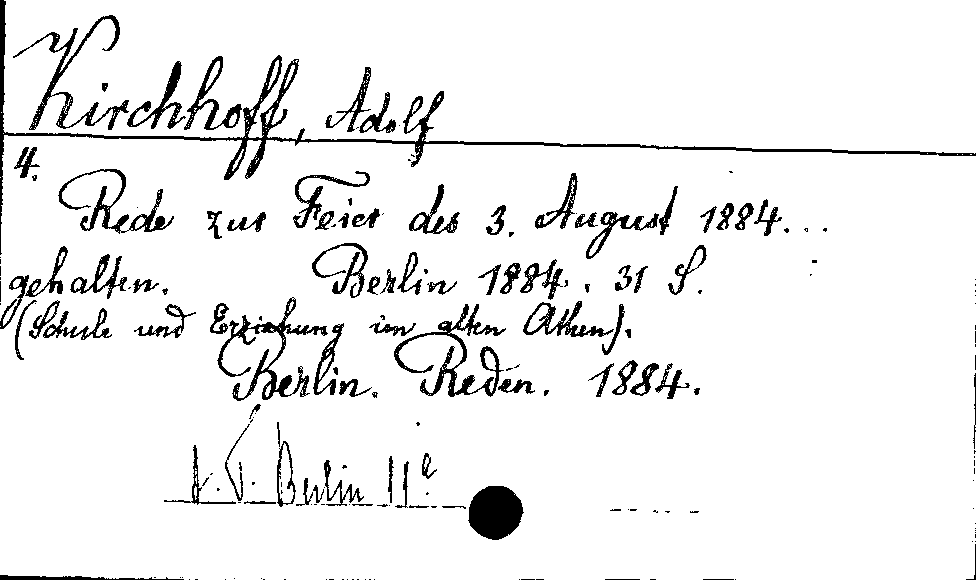 Kirchhoff, Adolf
4.
Rede zur Feier des 3. August 1884...
gehalten. Berlin 1884. 31 S.
(Schule und Erziehung im alten Athen).
Berlin. Reden. 1884.
Berlin 11